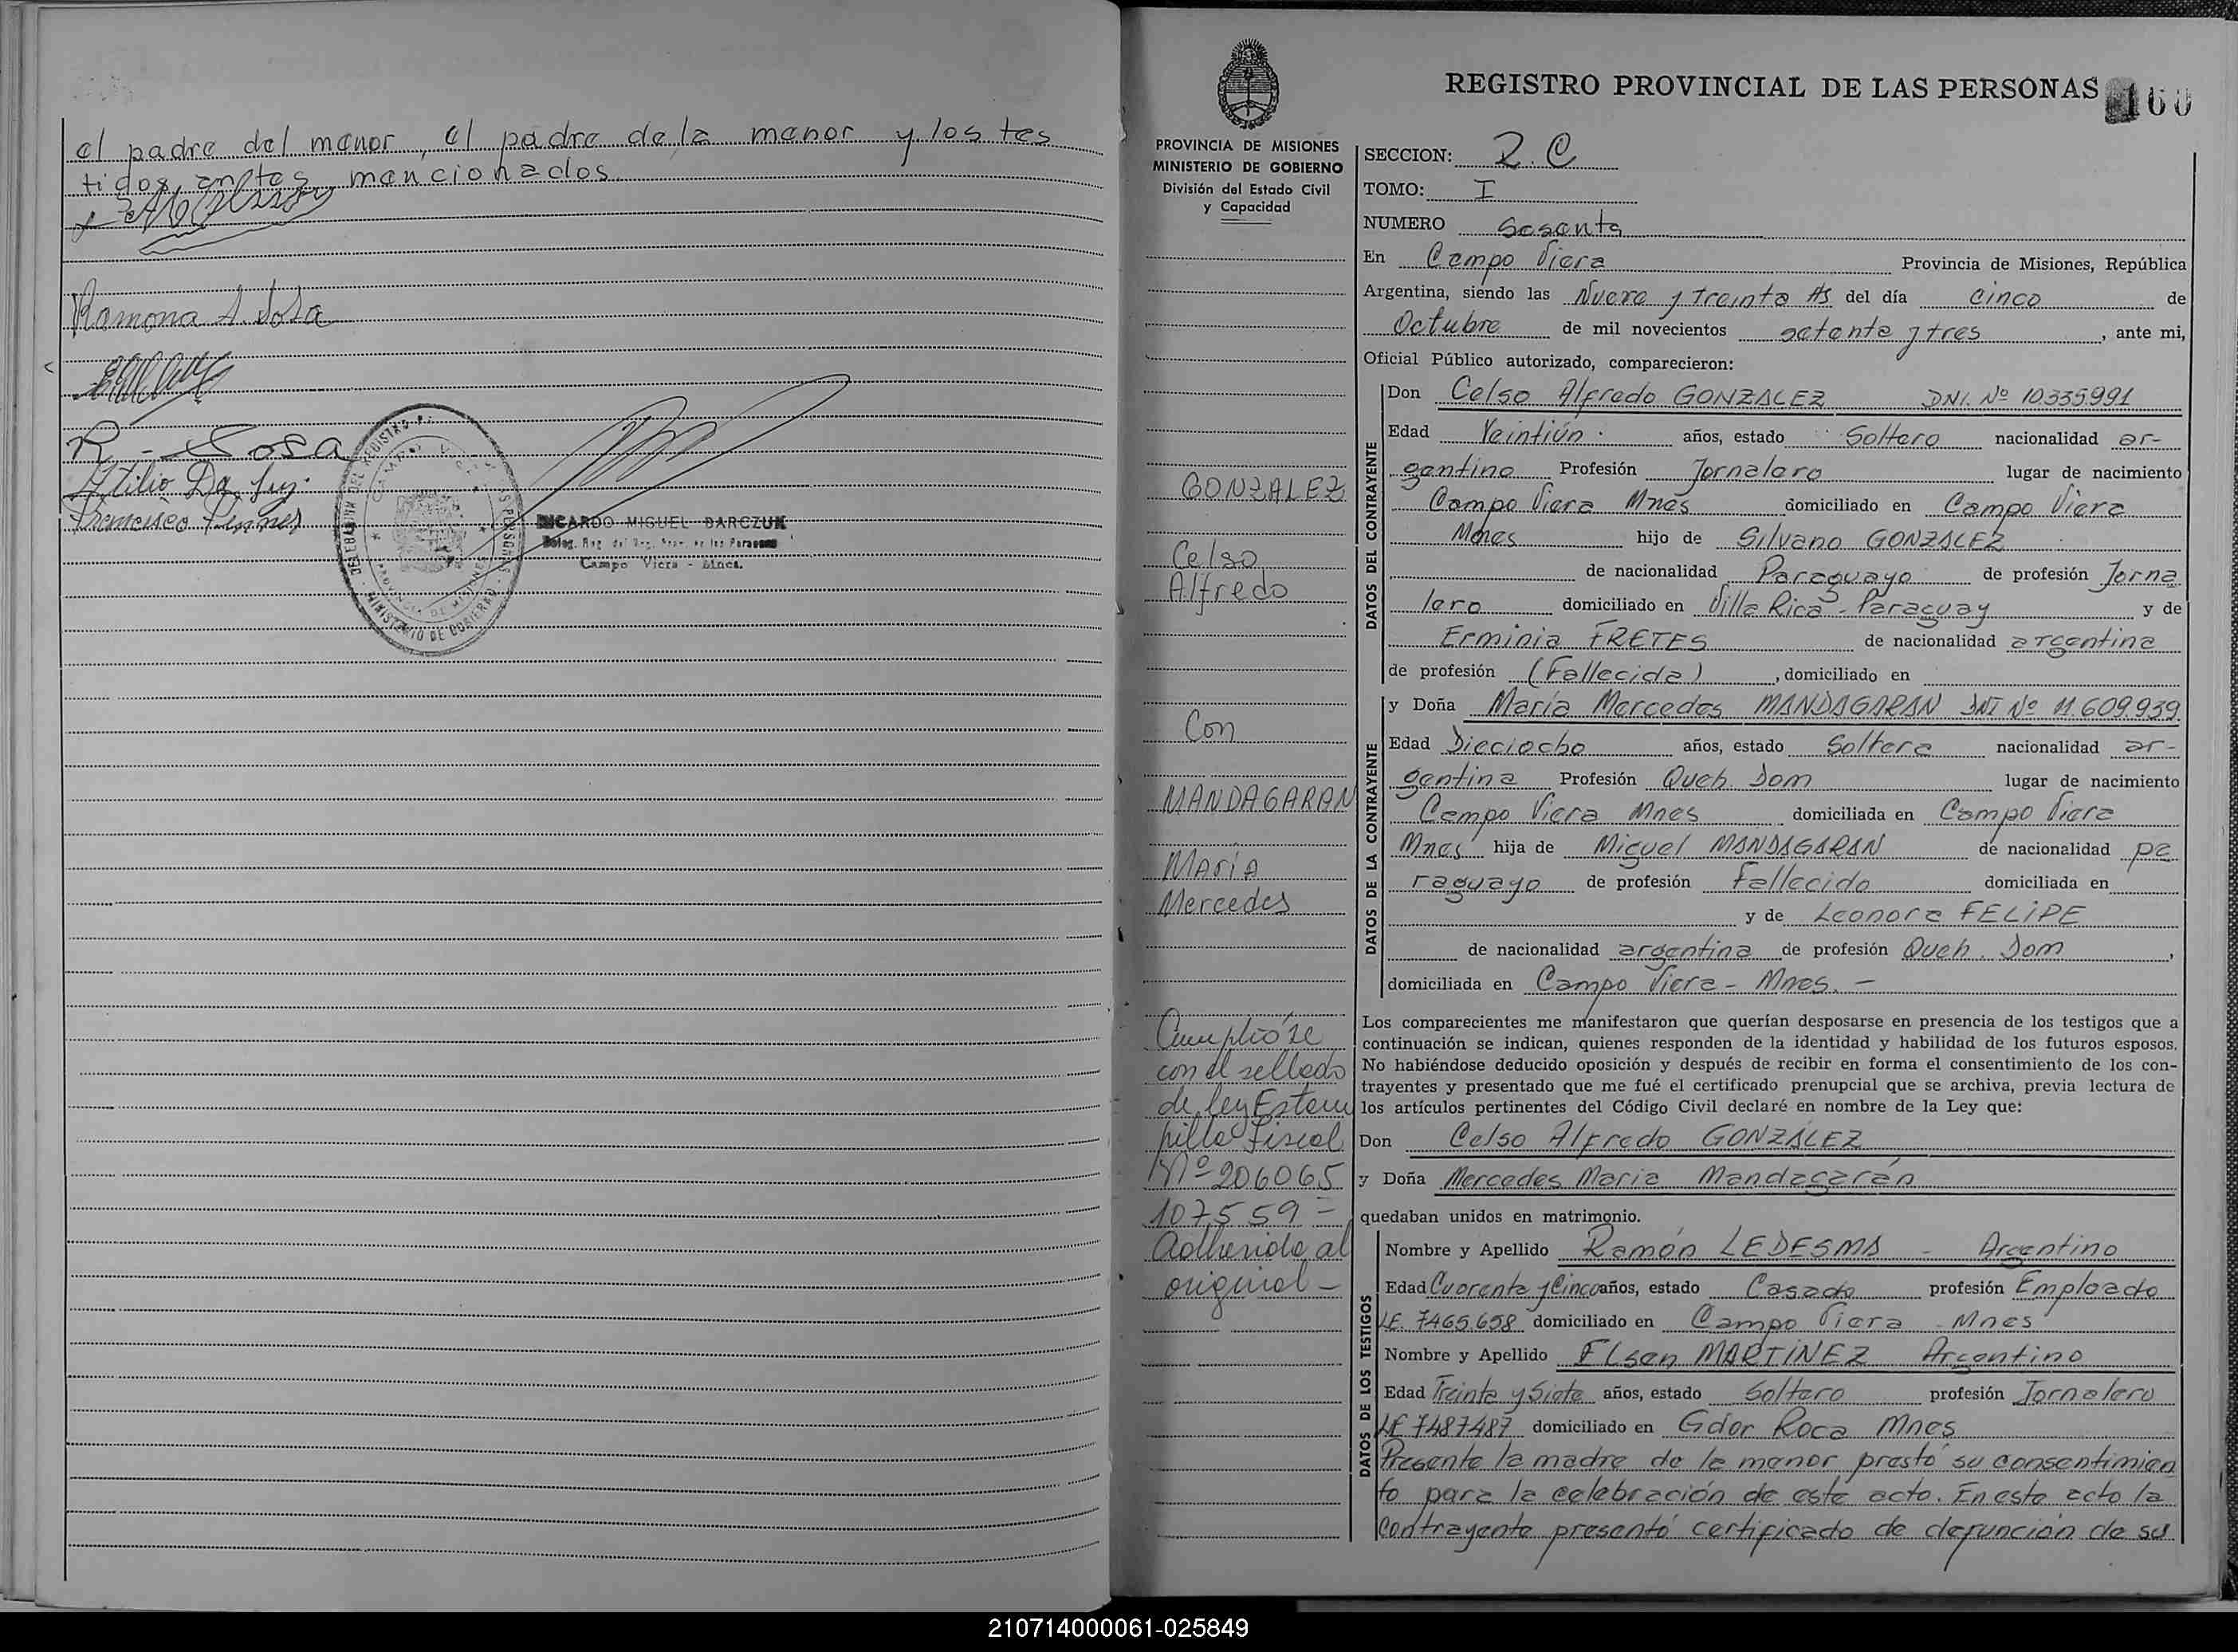 el padre del menor, el padre de la menor y los tes
tidos antes mencionados.
Ramona A. Sosa
R - Sosa
Atilio Da Luz
Francisco
RICARDO MIGUEL BARCZUK
Campo Viera - Mnes.
MINISTERIO DE GOBIERNO
PROVINCIA DE MISIONES
REGISTRO PROVINCIAL DE LAS PERSONAS
160
PROVINCIA DE MISIONES
MINISTERIO DE GOBIERNO
División del Estado Civil
y Capacidad
GONZALEZ
Celso
Alfredo
Con
MANDAGARAN
María
Mercedes
Cumplióse
con el sellado
de ley Estam
pilla Fiscal
Nº 206065
107559 -
Adherida al
original -
SECCION: 2. C
TOMO: I
NUMERO Sesenta
En Campo Viera Provincia de Misiones, República
Argentina, siendo las Nueve y treinta Hs del día cinco de
Octubre de mil novecientos setenta y tres, ante mi,
Oficial Público autorizado, comparecieron:
DATOS DEL CONTRAYENTE
Don Celso Alfredo GONZALEZ DNI. Nº 10.335.991
Edad Veintiún años, estado Soltero nacionalidad ar-
gentino Profesión Jornalero lugar de nacimiento
Campo Viera Mnes domiciliado en Campo Viera
Mnes hijo de Silvano GONZALEZ
de nacionalidad Paraguayo de profesión Jorna
lero domiciliado en Villa Rica - Paraguay y de
Erminia FRETES de nacionalidad argentina
de profesión (Fallecida), domiciliado en
DATOS DE LA CONTRAYENTE
y Doña María Mercedes MANDAGARAN DNI Nº 11.609.939
Edad Dieciocho años, estado Soltera nacionalidad ar-
gentina Profesión Queh. Dom lugar de nacimiento
Campo Viera Mnes domiciliada en Campo Viera
Mnes hija de Miguel MANDAGARAN de nacionalidad pa
raguayo de profesión Fallecido domiciliada en
y de Leonora FELIPE
de nacionalidad argentina de profesión Queh. Dom,
domiciliada en Campo Viera - Mnes. -
Los comparecientes me manifestaron que querían desposarse en presencia de los testigos que a
continuación se indican, quienes responden de la identidad y habilidad de los futuros esposos.
No habiéndose deducido oposición y después de recibir en forma el consentimiento de los con-
trayentes y presentado que me fué el certificado prenupcial que se archiva, previa lectura de
los artículos pertinentes del Código Civil declaré en nombre de la Ley que:
Don Celso Alfredo GONZÁLEZ
y Doña Mercedes Maria Mandagarán
quedaban unidos en matrimonio.
DATOS DE LOS TESTIGOS
Nombre y Apellido Ramón LEDESMA - Argentino
Edad Cuarenta y Cinco años, estado Casado profesión Empleado
LE. 7465.658 domiciliado en Campo Viera - Mnes
Nombre y Apellido Elsen MARTINEZ Argentino
Edad Treinta y Siete años, estado Soltero profesión Jornalero
LE 7487487 domiciliado en Gdor Roca Mnes
Presente la madre de la menor prestó su consentimien
to para la celebración de este acto. En este acto la
contrayente presentó certificado de defunción de su
210714000061-025849